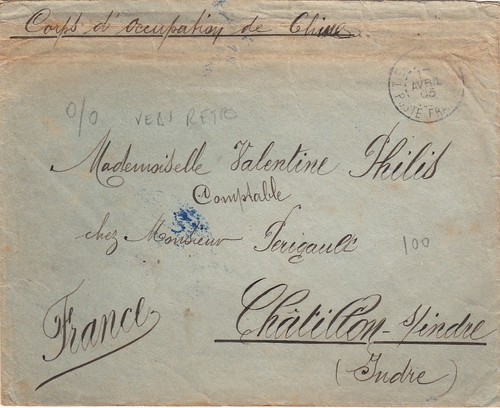 Corps d'occupation de Chine
AVRIL
03
POSTE FRA
0/0 VERS RETRO
Mademoiselle Valentine Philis
Comptable
chez Monsieur Perigault
100
France
Châtillon-s/indre
(Indre)